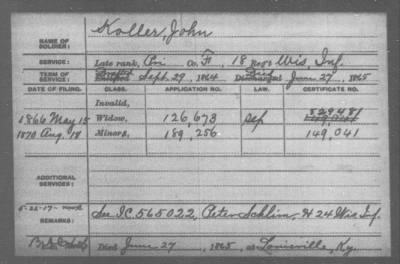 NAME OF SOLDIER: Koller, John
SERVICE: Late rank, Pri Co. F, 18 Reg't Wis. Inf.
TERM OF SERVICE: Enlisted Sept. 27, 1864 Discharged June 27, 1865
DATE OF FILING. CLASS. APPLICATION NO. LAW. CERTIFICATE NO.
Invalid,
829481
1866 May 15 Widow, 126,673
1870 Aug. 18 Minors, 189,256 149,041
ADDITIONAL SERVICES:
5-26-17-
REMARKS: See I.C. 565022, Peter Schlim, H 24 Wis Inf.
Died June 27, 1865, at Louisville, Ky.